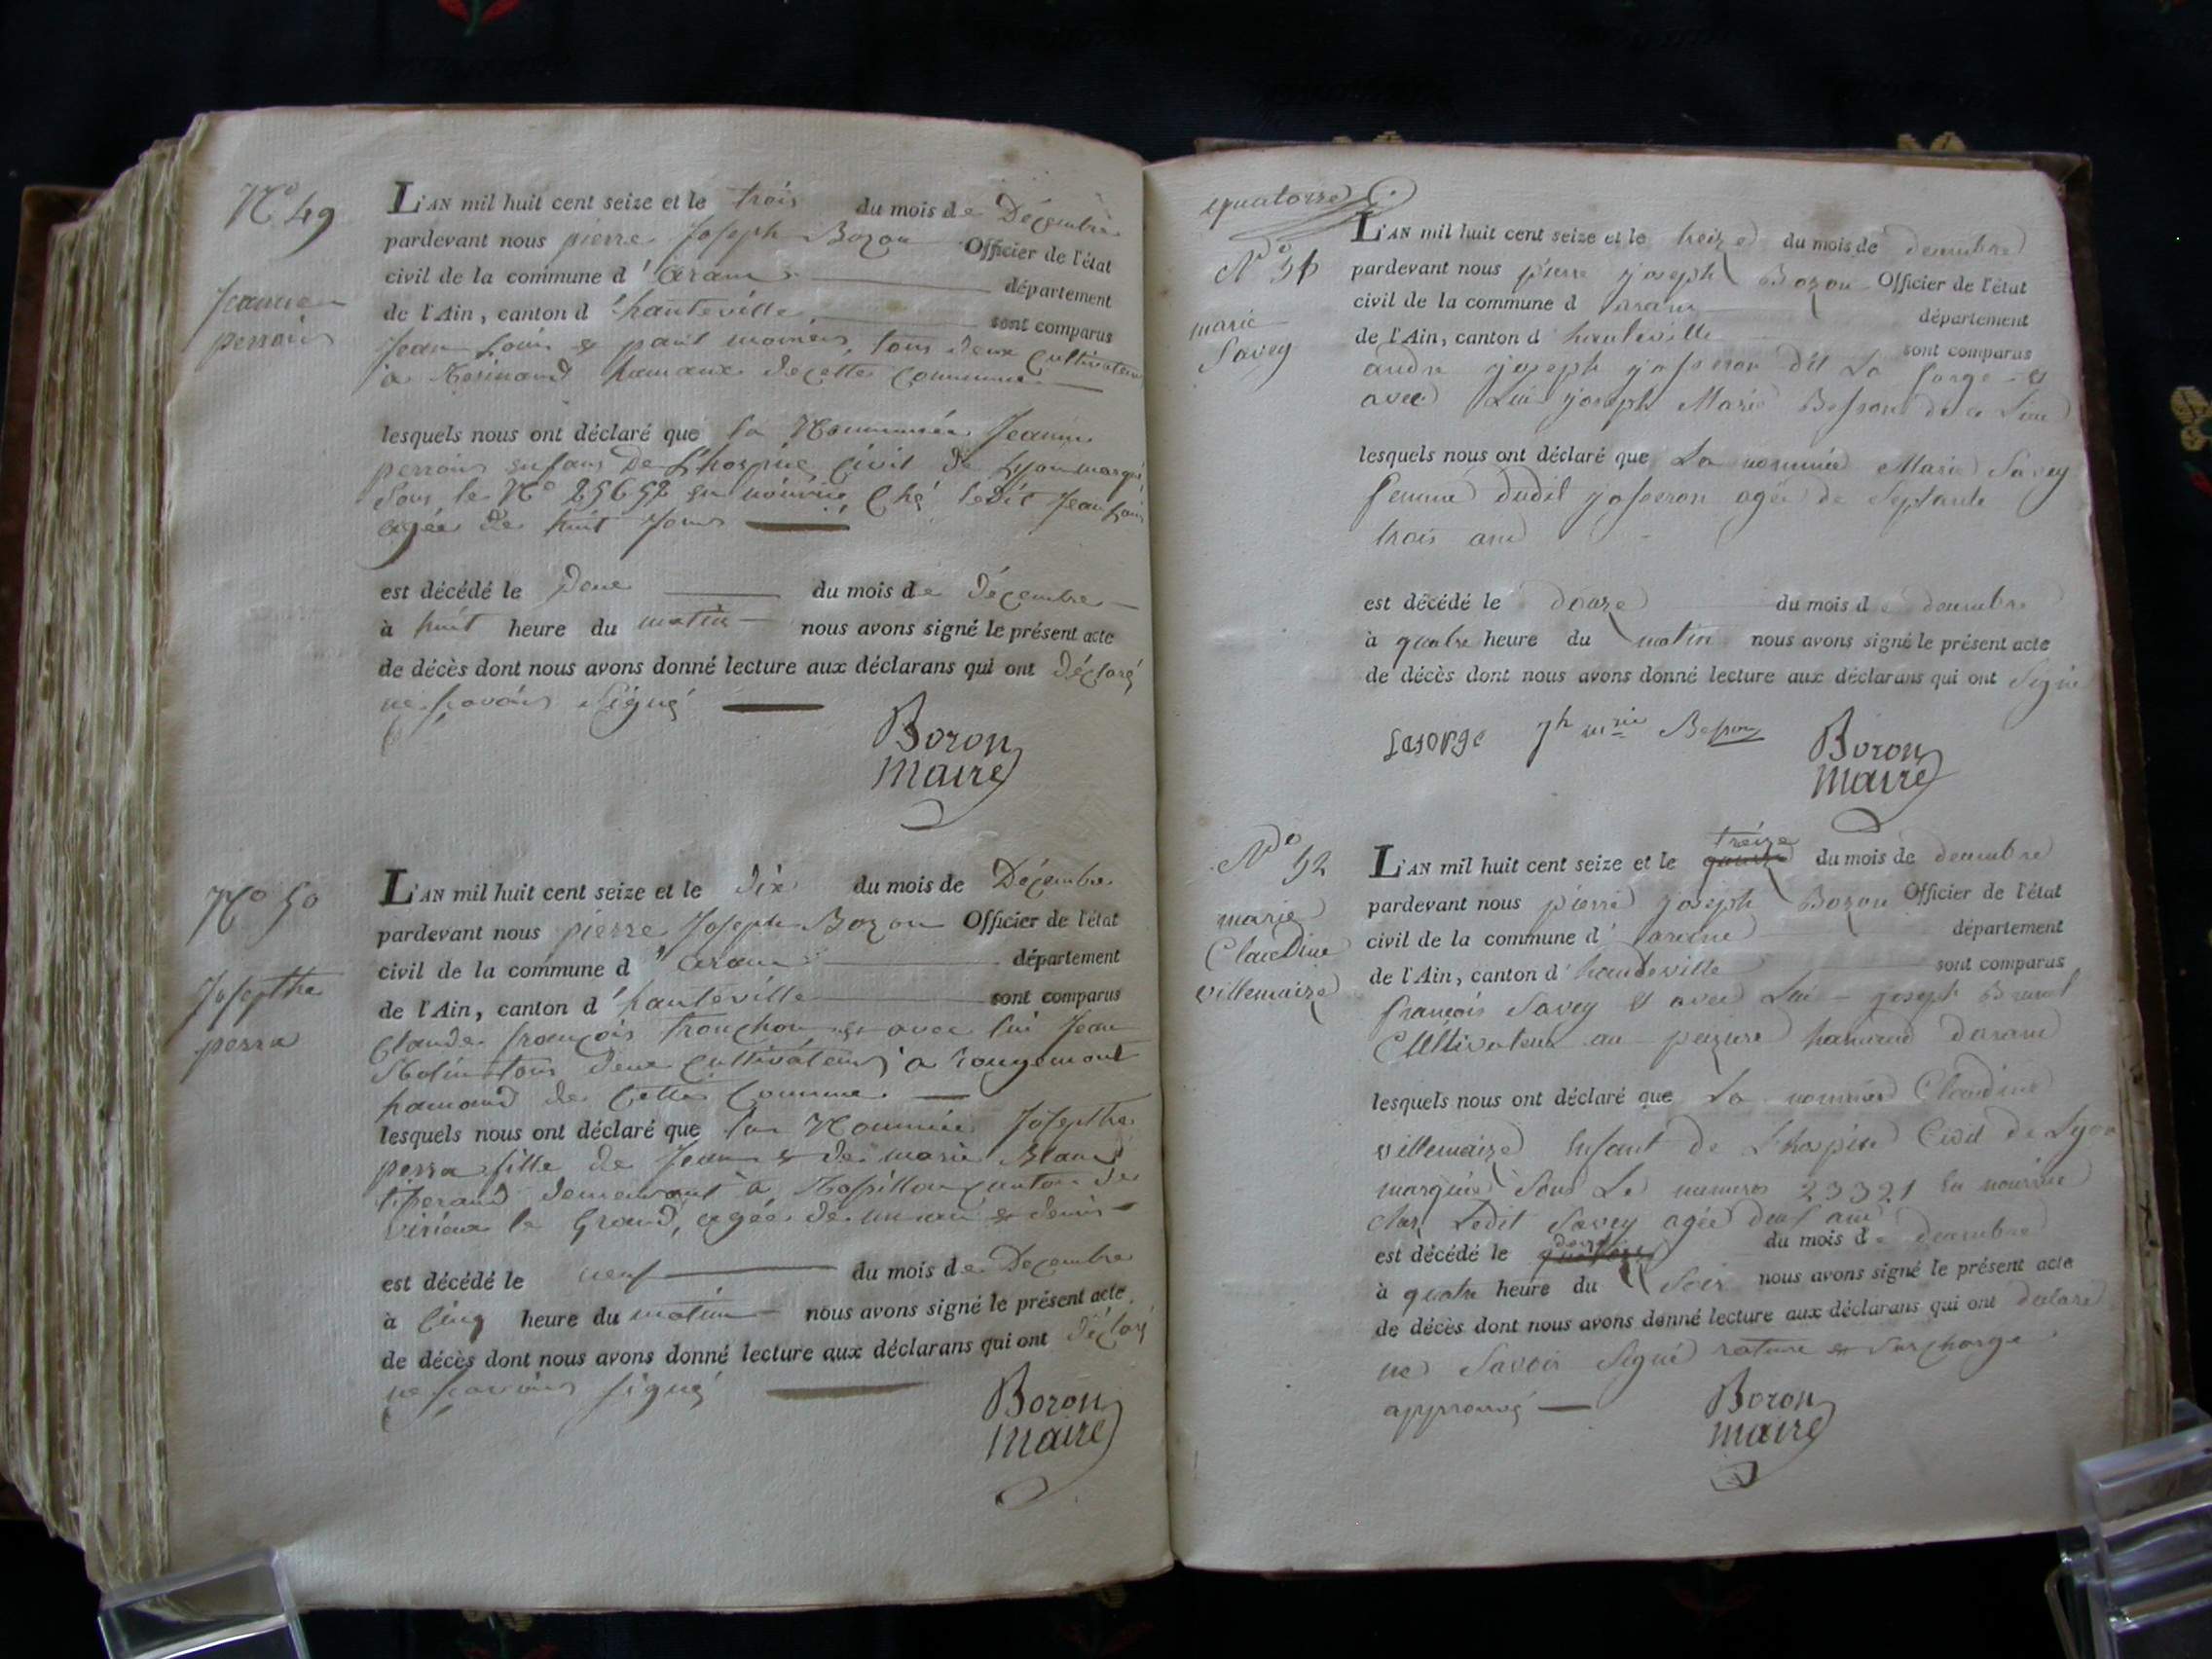 N.o 49
Jeanne
perrois
L'AN mil huit cent seize et le trois du mois de Décembre
pardevant nous pierre Joseph Bozon Officier de l'état
civil de la commune d'aranc département
de l'Ain, canton d'hauteville sont comparus
Jean Louis & paul tous deux Cultivateurs
a hamaux de cette Commune
lesquels nous ont déclaré que la Nommée Jeanne
perrois enfans De L'hospice Civil de Lyon marqué
Sous le N.o 25652 en nourrice Ché ledit Jean Louis
agée de huit Jours
est décédé le Deux du mois de Décembre
à huit heure du matin nous avons signé le présent acte
de décès dont nous avons donné lecture aux déclarans qui ont Déclaré
ne savoir Signé
Bozon
Maire
N.o 50
Josepthe
perra
L'AN mil huit cent seize et le Dix du mois de Décembre
pardevant nous pierre Joseph Bozon Officier de l'état
civil de la commune d'aranc département
de l'Ain, canton d'hauteville sont comparus
Claude françois tronchon & avec lui Jean
tous Deux Cultivateurs a rougemont
hamaud de Cette Commune
lesquels nous ont déclaré que la Nommée Josepthe
perra fille de Jean & de marie Blanc
tiserand demeurant à Rossillon Canton de
virieux le Grand, agée de un an & demis
est décédé le neuf du mois de Decembre
à Cinq heure du matin nous avons signé le présent acte
de décès dont nous avons donné lecture aux déclarans qui ont Déclaré
ne savoir signé
Bozon
Maire
quatorze
N.o 51
marie
Savey
L'AN mil huit cent seize et le treize du mois de decembre
pardevant nous pierre joseph Bozon Officier de l'état
civil de la commune d aranc département
de l'Ain, canton d hauteville sont comparus
andre joseph josseron dit La forge et
avec Lui joseph Marie Besson
lesquels nous ont déclaré que La nommée Marie Savey
femme dudit josseron agée de Septante
trois ans
est décédé le douze du mois de decembre
à quatre heure du matin nous avons signé le présent acte
de décès dont nous avons donné lecture aux déclarans qui ont Signé
Laforge jh m.rie Besson
Bozon
Maire
N.o 52
marie
Claudine
villemaize
treize
L'AN mil huit cent seize et le du mois de decembre
pardevant nous pierre joseph Bozon Officier de l'état
civil de la commune d'aranc département
de l'Ain, canton d'hauteville sont comparus
francois Savey et avec Lui joseph
Cultivateur au hamaud daranc
lesquels nous ont déclaré que La nommée Claudine
villemaize Enfant de L'hospice Civil de Lyon
marquée Sous Le numero 23321 En nourrice
ches Ledit Savey agée
douze
est décédé le quatorze du mois de decembre
à quatre heure du Soir nous avons signé le présent acte
de décès dont nous avons donné lecture aux déclarans qui ont declaré
ne Savoir Signé rature & Surcharge
approuvé
Bozon
Maire